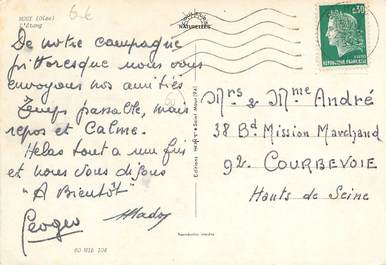 (Oise)
L'étang
NATURELLES
0,30
REPUBLIQUE FRANÇAISE
De notre campagne
pittoresque nous vous
envoyons nos amitiés
Temps passable, mais
repos et Calme.
Helas tout a une fin
et nous vous disons
"A Bientôt"
Georges
Mado
60 MIL 104
Reproduction interdite
Mrs & Mme André
38 Bd Mission Marchand
92. COURBEVOIE
Hauts de Seine